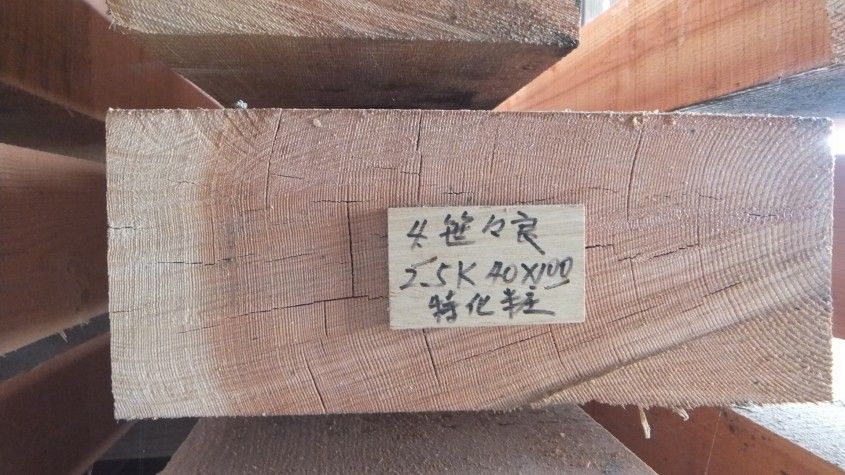 4 笹々良
2.5K 40×100
特化粧